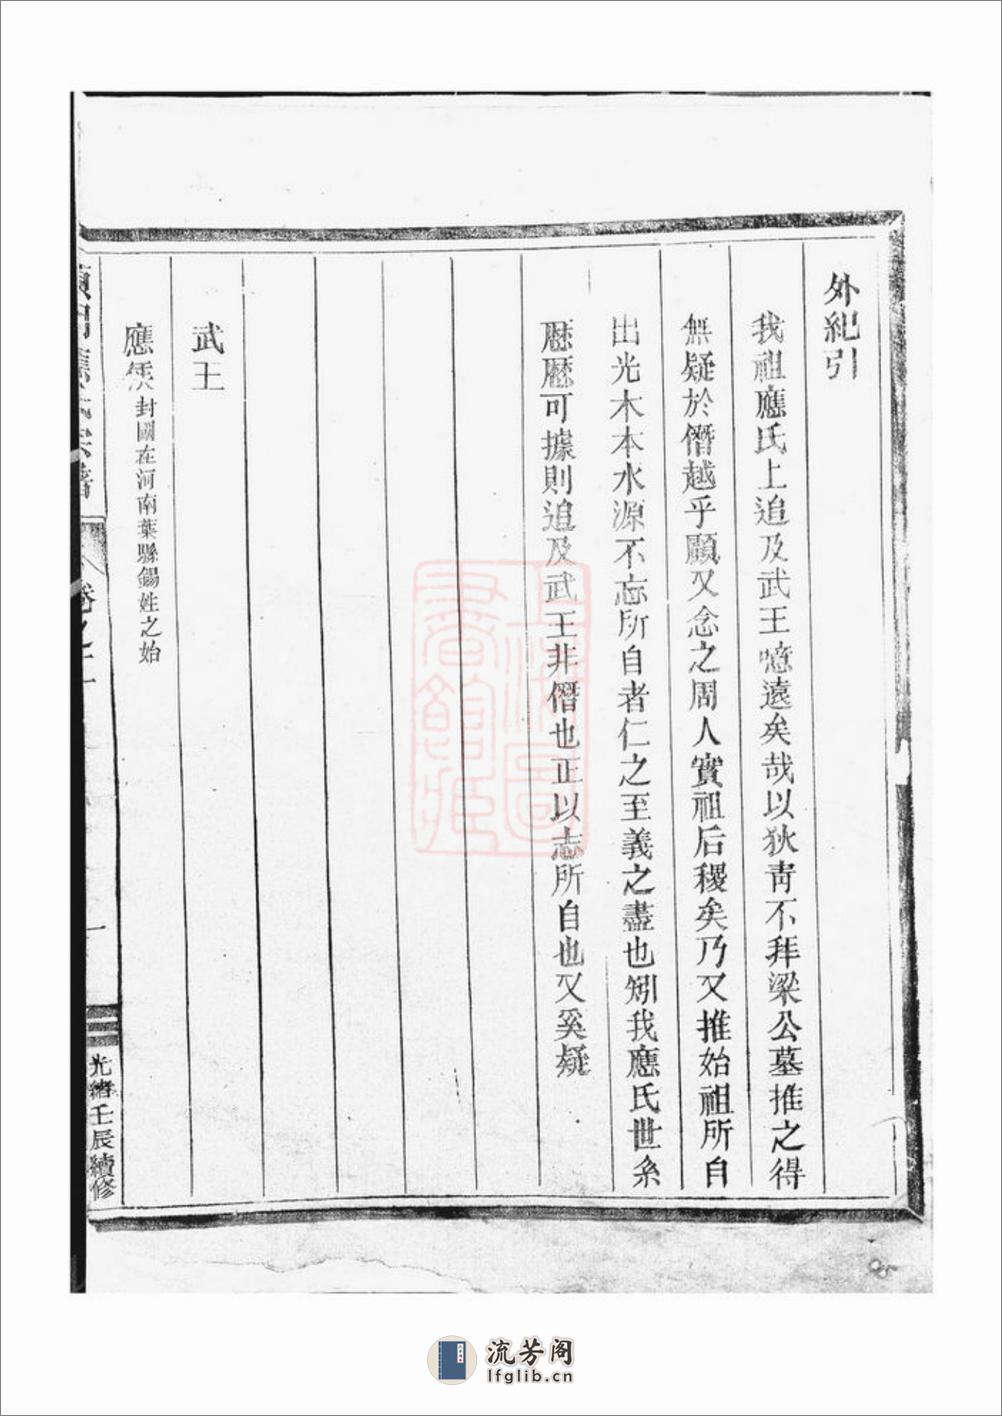 外紀引
我祖應氏上追及武王噫遠矣哉以狄靑不拜梁公墓推之得
無疑於僭越乎顧又念之周人實祖后稷矣乃又推始祖所自
出光木本水源不忘所自者仁之至義之盡也矧我應氏世系
歷歷可據則追及武王非僭也正以志所自也又奚疑
武王
應侯封國在河南葉縣錫姓之始
卷之
一
光緒壬辰續修
上海圖書館藏
流芳阁
lfglib.cn